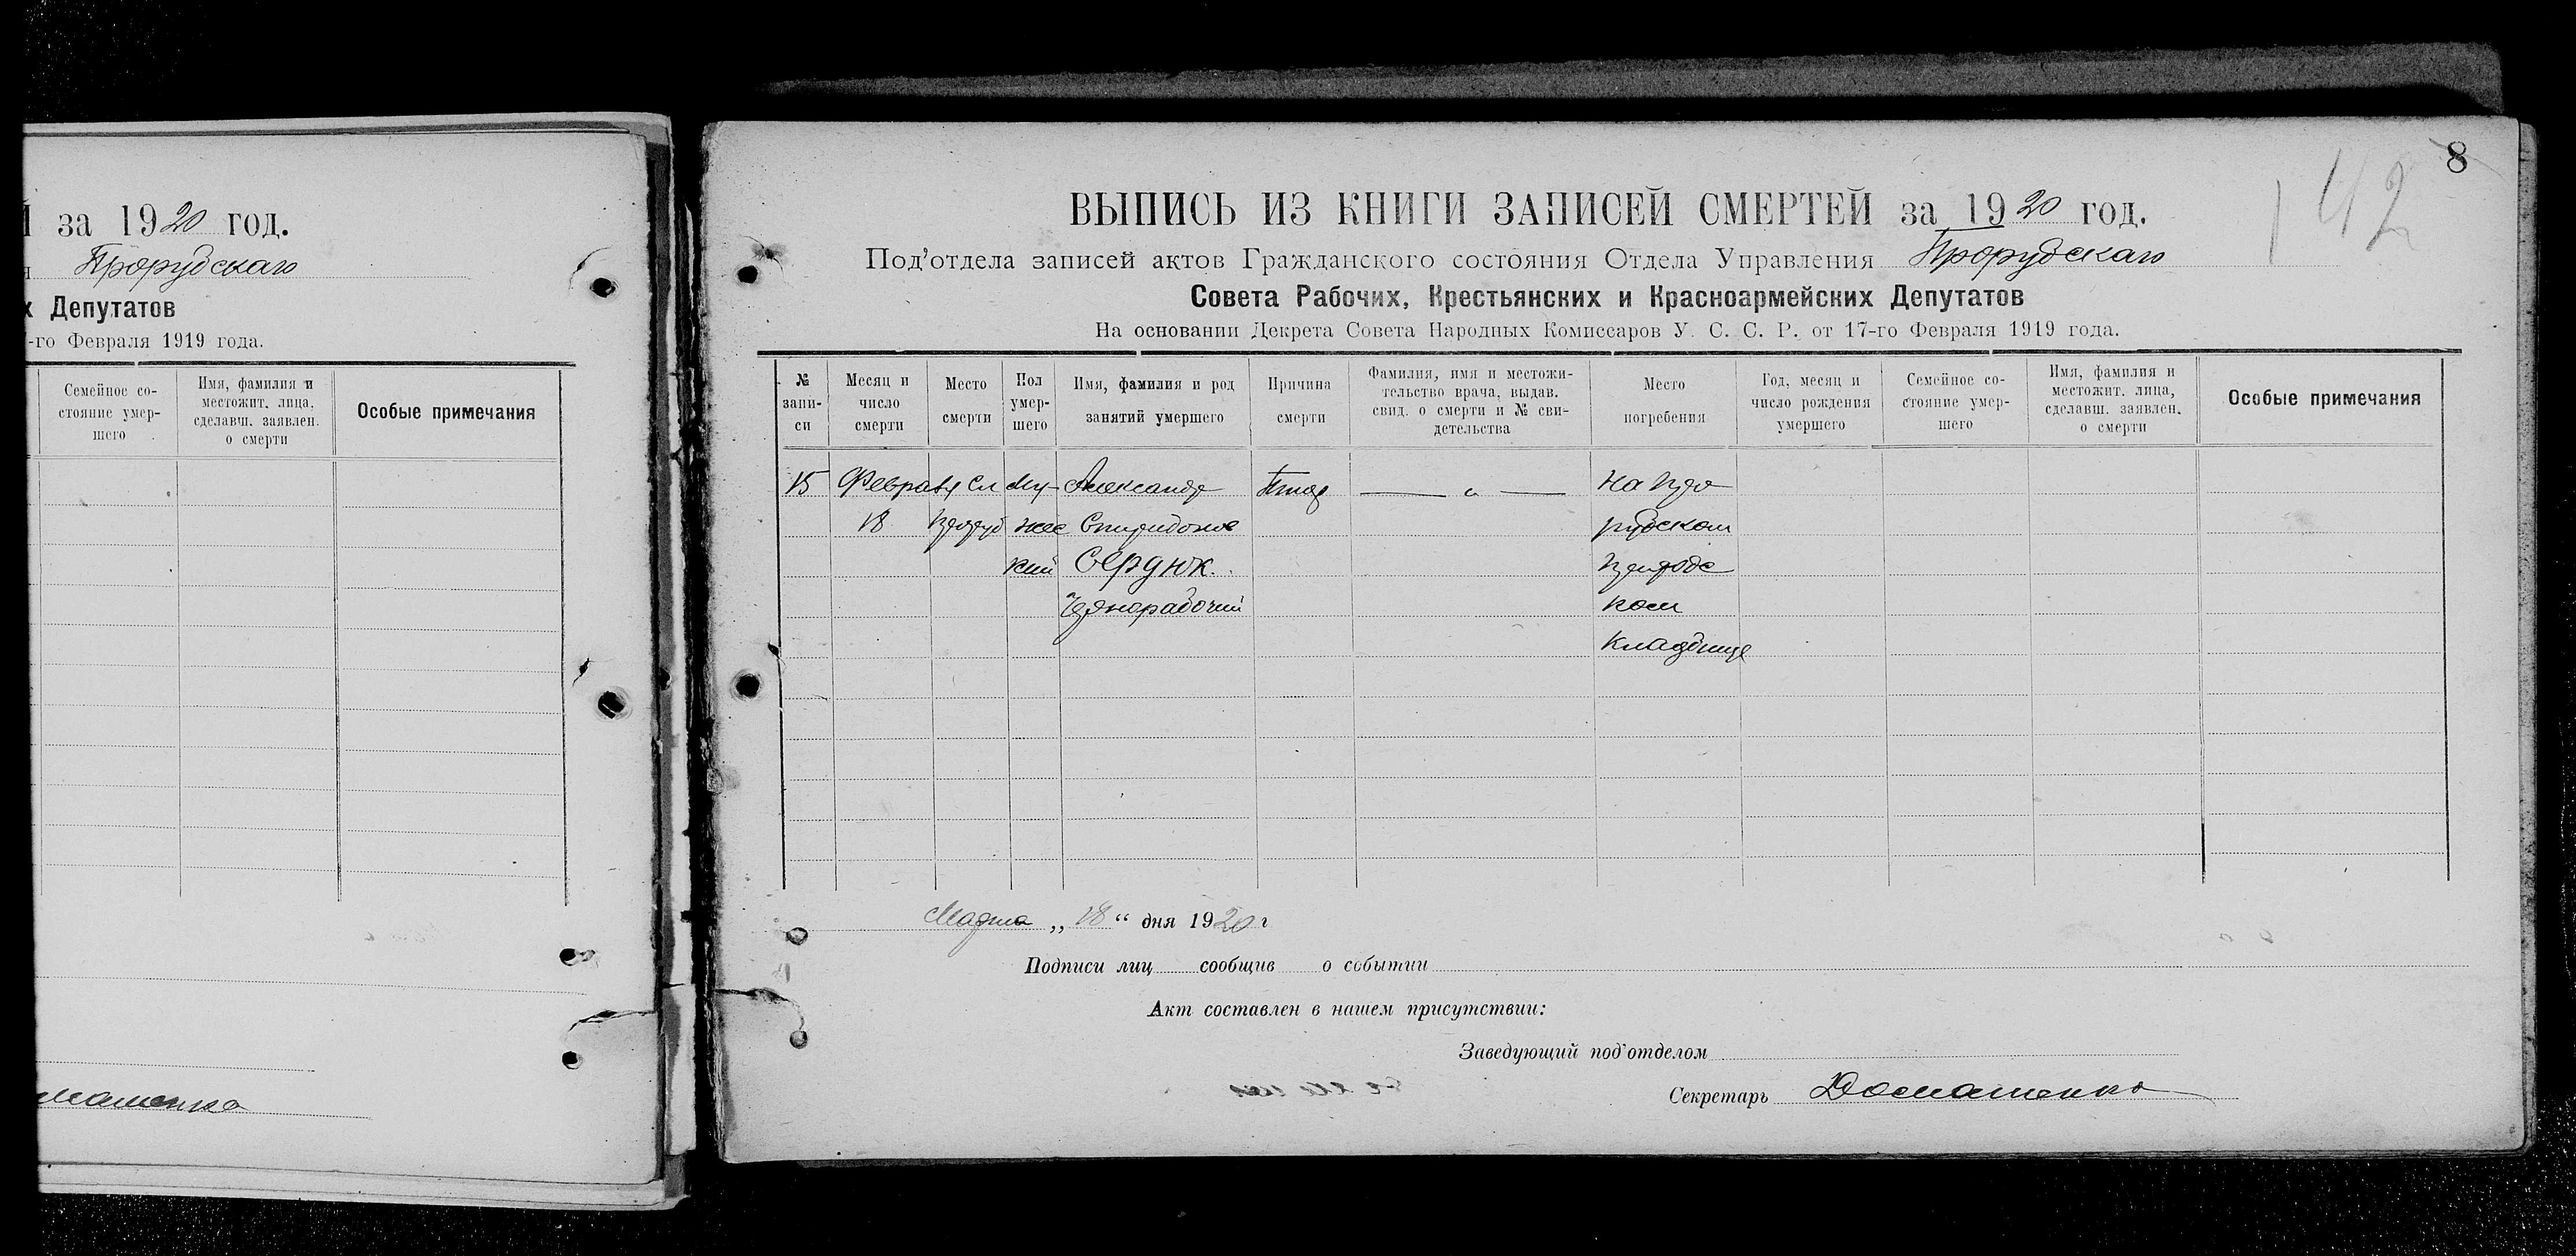 за 1920 год.
Прорубскаго
Депутатов
-го Февраля 1919 года.
Семейное со-
стояние умер-
шего
Имя, фамилия и
местожит. лица,
сделавш. заявлен.
о смерти
Особые примечания
8
142
ВЫПИСЬ ИЗ КНИГИ ЗАПИСЕЙ СМЕРТЕЙ за 1920 год.
Под'отдела записей актов Гражданского состояния Отдела Управления Прорубскаго
Совета Рабочих, Крестьянских и Красноармейских Депутатов
На основании Декрета Совета Народных Комиссаров У. С. С. Р. от 17-го Февраля 1919 года.
№
запи-
си
Месяц и
число
смерти
Место
смерти
Пол
умер-
шего
Имя, фамилия и род
занятий умершего
Причина
смерти
Фамилия, имя и местожи-
тельство врача, выдав.
свид. о смерти и № сви-
детельства
Место
погребения
Год, месяц и
число рождения
умершего
Семейное со-
стояние умер-
шего
Имя, фамилия и
местожит. лица,
сделавш. заявлен.
о смерти
Особые примечания
15
Февраля
18
Сл
Проруб
Му-
жес
кий
Александр
Спиридонов
Сердюк.
Чернорабочий
Тиф
— " —
На Про
рубском
приходс
ком
кладбище
Марта „18“ дня 1920 г
Подписи лиц сообщив о событии
Акт составлен в нашем присутствии:
Заведующий под'отделом
Секретарь Домашенко